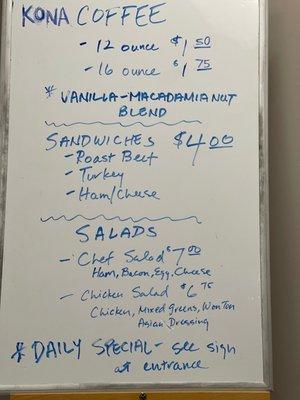 KONA COFFEE
- 12 ounce $1 50
- 16 ounce $1 75
* VANILLA-MACADAMIA NUT
BLEND
SANDWICHES $4 00
- Roast Beef
- Turkey
- Ham/Cheese
SALADS
- Chef Salad $7 00
Ham, Bacon, Egg, Cheese
- Chicken Salad $6 75
Chicken, Mixed Greens, WonTon
Asian Dressing
* DAILY SPECIAL - see sign
at entrance